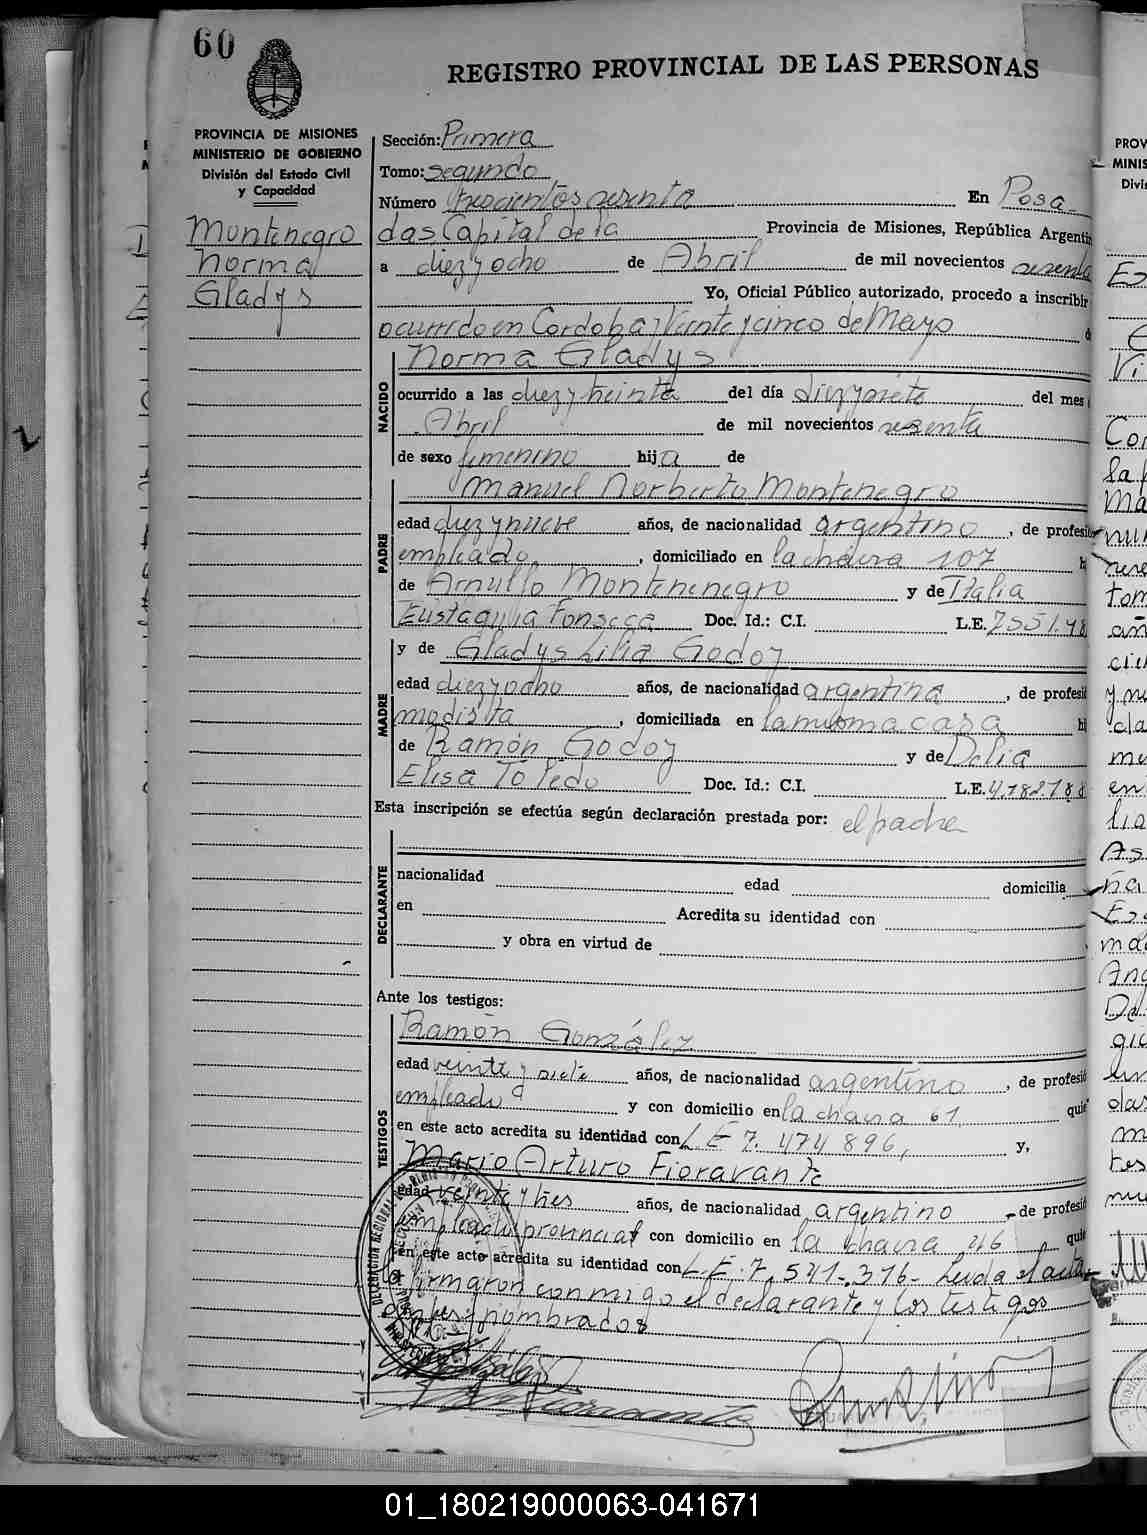 60
REGISTRO PROVINCIAL DE LAS PERSONAS
PROVINCIA DE MISIONES
MINISTERIO DE GOBIERNO
División del Estado Civil
y Capacidad
Montenegro
Norma
Gladys
Sección: Primera
Tomo: segundo
Número trescientos sesenta En Posa-
das Capital de la Provincia de Misiones, República Argentin
a diez y ocho de Abril de mil novecientos sesenta
Yo, Oficial Público autorizado, procedo a inscribir
ocurrido en Cordoba y Veinte y cinco de Mayo d
NACIDO
Norma Gladys
ocurrido a las diez y treinta del día diez y siete del mes
Abril de mil novecientos sesenta
de sexo femenino hija de
PADRE
Manuel Norberto Montenegro
edad diez y nueve años, de nacionalidad argentino, de profesió
empleado, domiciliado en la chacra 107 h
de Arnulfo Montenenegro y de Italia
Eustaquia Fonseca Doc. Id.: C.I. L.E. 7551.48
MADRE
y de Gladys Lilia Godoy
edad diez y ocho años, de nacionalidad argentina, de profesi
modista, domiciliada en la misma casa hi
de Ramón Godoy y de Delia
Elisa Toledo Doc. Id.: C.I. L.E. 4.782.788
Esta inscripción se efectúa según declaración prestada por: el padre
DECLARANTE
nacionalidad edad domicilia
en Acredita su identidad con
y obra en virtud de
Ante los testigos:
TESTIGOS
Ramón González
edad veinte y siete años, de nacionalidad argentino, de profesió
empleado y con domicilio en la chacra 61 quie
en este acto acredita su identidad con L E 7. 474 896, y,
Mario Arturo Fioravante
edad veinte y tres años, de nacionalidad argentino de profesió
empleado provincial con domicilio en la chacra 46 quie
en este acto acredita su identidad con L.E. 7.541-316- Leida el acta
la firmaron conmigo el declarante y los testigos
antes nombrados
01_180219000063-041671